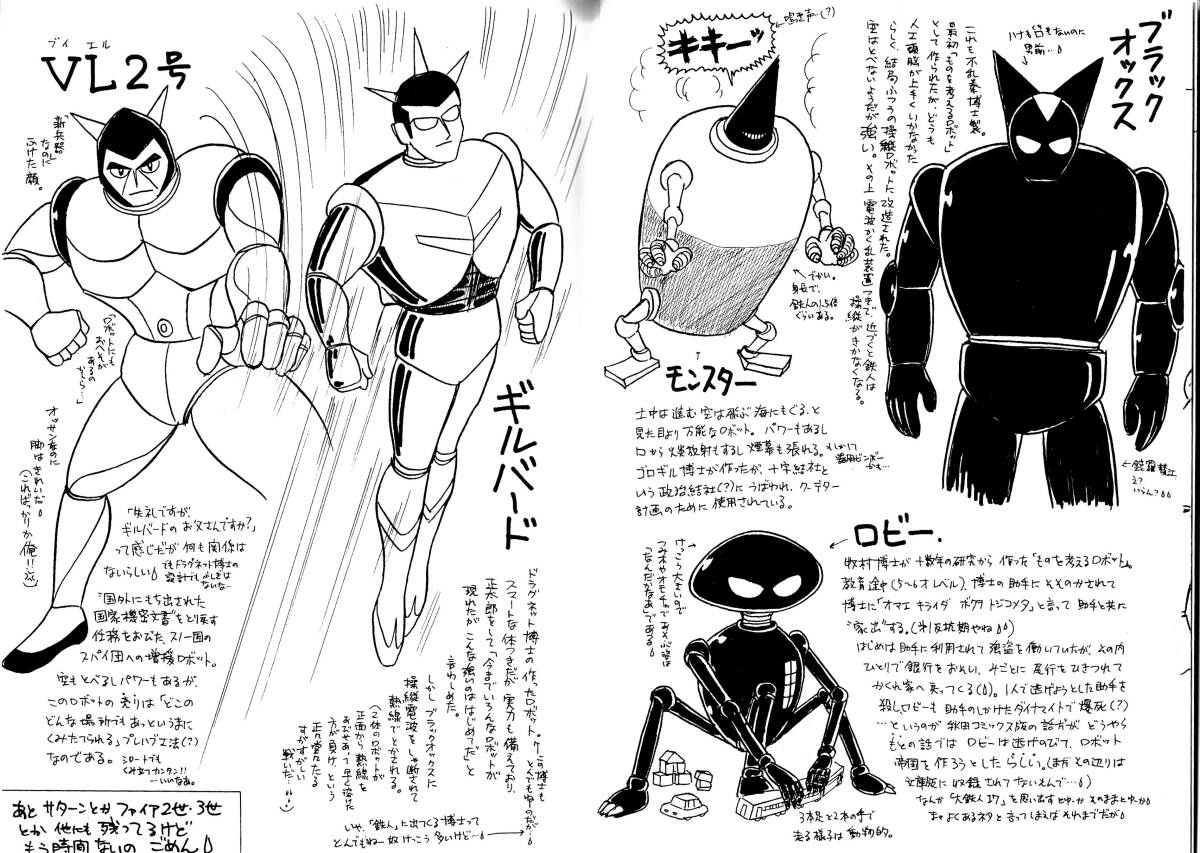 ブラック
オックス
ハナも口もないのに
男前…
これも不乱拳博士製。
最初「ものを考えるロボット」
として作られたが、どうも
人工頭脳が上手くいかなかった
らしく、結局ふつうの操縦ロボットに改造された。
空はとべないようだが強い。その上電波かく乱装置つきで、近づくと鉄人は
操縦がきかなくなる。
キキーッ
←鳴き声(?)
でかい。
身長で、
鉄人の1.5倍
くらいある。
モンスター
土中は進む空は飛ぶ海にもぐる、と
見た目より万能なロボット。パワーもあるし
口から火炎放射もするし煙幕も張れる。
ゴロギル博士が作ったが、十字結社と
いう政治結社(?)にうばわれ、クーデター
計画のために使用されている。
ロビー.
けっこう大きいので
つみ木やオモチャで
「なんだかなあ」である
牧村博士が十数年の研究から作った「ものを考えるロボット」。
教育途中(5〜6才レベル)、博士の助手にそそのかされて
博士に「オマエ キライダ ボクヲ トジコメタ」と言って助手と共に
"家出"する。(ネ!反抗期やね)
はじめは助手に利用されて強盗を働いていたが、その内
ひとりで銀行をおそい、みごとに尾行をひきつれて
かくれ家へ戻ってくる()。1人で逃げようとした助手を
殺しロビーも助手のしかけたダイナマイトで爆死(?)
…というのが秋田コミックス版の話だが、どうやら
もとの話ではロビーは逃げのびて、ロボット
帝国を作ろうとしたらしい。(まだその辺りは
文庫版に収録されてないもんで…)
なんか「大鉄人17」を思い出すとゆーかそのままとゆーか
まァよくあるネタと言ってしまえばそれまでだが
3本足と2本の手で
走る様子は動物的。
ブイ エル
VL2号
「新兵器」
なのに
ふけた顔。
「ロボットにも
おへそが
あるの
かしら…」
オッサン顔のに
脚はきれいだ
(こればっかりか俺!!)
「失礼ですが、
ギルバードのお父さんですか?」
って感じだが何も関係は
ないらしい
でもドラグネット博士の
設計でもふしぎは
ないな…
"国外にもち出された
国家機密文書"をとり戻す
任務をおびた、スノー国の
スパイ団への増援ロボット。
空もとべるしパワーもあるが、
このロボットの売りは「どこの
どんな場所でもあっというまに
くみたてられる」プレハブ工法(?)
なのである。
シロートでも
くみ立てカンタン!!
——いいなあ。
あと サターンとか ファイア2世・3世
とか 他にも 残ってるけど
もう時間ないの ごめん
ギルバード
ドラグネット博士の作ったロボット。
スマートな体つきだが実力も備えており、
正太郎をして、「今までいろんなロボットが
現れたがこんな強いのははじめてだ」と
言わしめた。
しかしブラックオックスに
操縦電波をしゃ断されて
熱線でとかされる。
(2体のロボットが
正面から熱線を
あびせあって早く溶けた
方が負け、という
正々堂々たる
すがすがしい
戦いだ。)
いや、「鉄人」に出てくる博士って
とんでもねー奴けっこう多いけど…